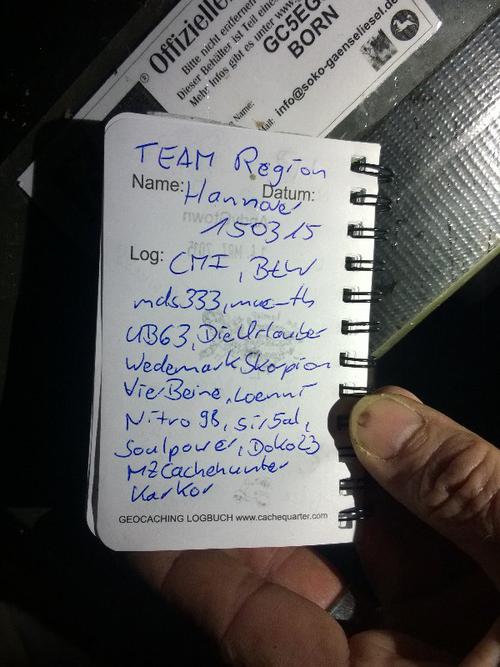 Offizielle
Bitte nicht entfernen
Dieser Behälter ist Teil eine
Mehr Infos gibt es unter www.
GC5EG
BORN
Name:
info@soko-gaenseliesel.de
TEAM Region
Name: Hannover Datum:
150315
Log: CMI, BtW
mds333, mue-th
UB63, DieUrlauber
WedemarkSkorpion
VierBeine, Loenni
Nitro98, sir5al,
Soulpower, Doko23
MZCachehunter
KarKor
GEOCACHING LOGBUCH www.cachequarter.com